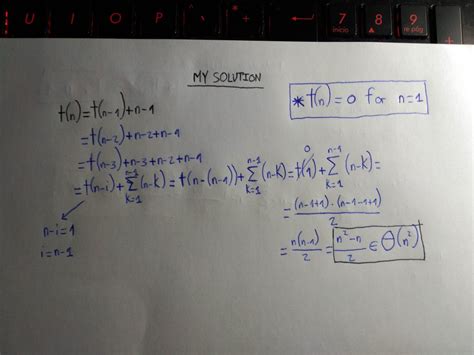 U I O P 7 8 9
início re pág
MY SOLUTION
*t(n)=0 for n=1
t(n)=t(n-1)+n-1
=t(n-2)+n-2+n-1
=t(n-3)+n-3+n-2+n-1
=t(n-i)+∑_{k=1}^{n-1}(n-k)=t(n-(n-1))+∑_{k=1}^{n-1}(n-k)=t(1)^0+∑_{k=1}^{n-1}(n-k)=
n-i=1
i=n-1
=((n-1+1)·(n-1-1+1))/2
=n(n-1)/2=(n²-n)/2∈Θ(n²)